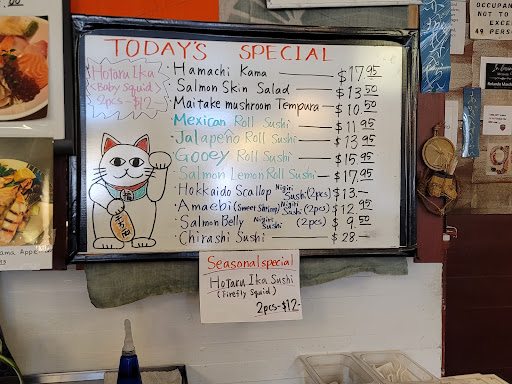 TODAY'S SPECIAL
Hotaru Ika
(Baby Squid)
2pcs - $12 -
· Hamachi Kama — $17.95
· Salmon Skin Salad — $13.50
· Maitake mushroom Tempura — $10.50
· Mexican Roll Sushi — $11.95
· Jalapeño Roll Sushi — $13.95
· Gooey Roll Sushi — $15.95
· Salmon Lemon Roll Sushi — $17.95
· Hokkaido Scallop Nigiri Sushi (2pcs) $13.—
· Amaebi (Sweet Shrimp) Nigiri Sushi (2pcs) $12.95
· Salmon Belly Nigiri Sushi (2pcs) $9.50
· Chirashi Sushi $28.—
Seasonal special
Hotaru Ika Sushi
(Firefly Squid)
2pcs - $12 -
OCCUPAN
NOT TO
EXCE
49 PERS
ama Appe